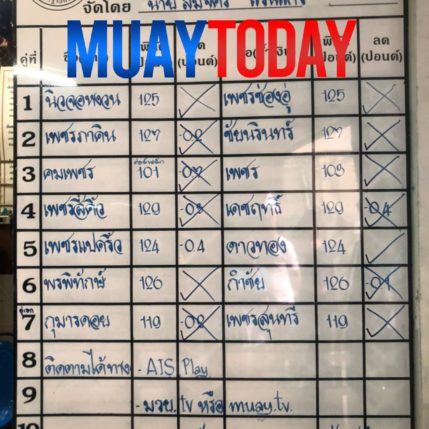 จัดโดย
MUAYTODAY
คู่ที่ ลด
(ปอนด์) (ปอนด์)
1 นิวจอหงวน 125 เพชรช้องอู่ 125
2 เพชรภาคิน 127 02 ชัยนรินทร์ 127
3 คมเพชร 101 02 เพชร 103
4 เพชรสี่คิ้ว 129 03 เดชฤทธิ์ 129 04
5 เพชรแปดริ้ว 124 04 ดาวทอง 124
6 พรพิทักษ์ 126 กำชัย 126 01
7 กุมารดอย 119 02 เพชรสุนทรี 119
8 ติดตามได้ทาง - AIS Play
9 - มวย.tv หรือ muay.tv.
10